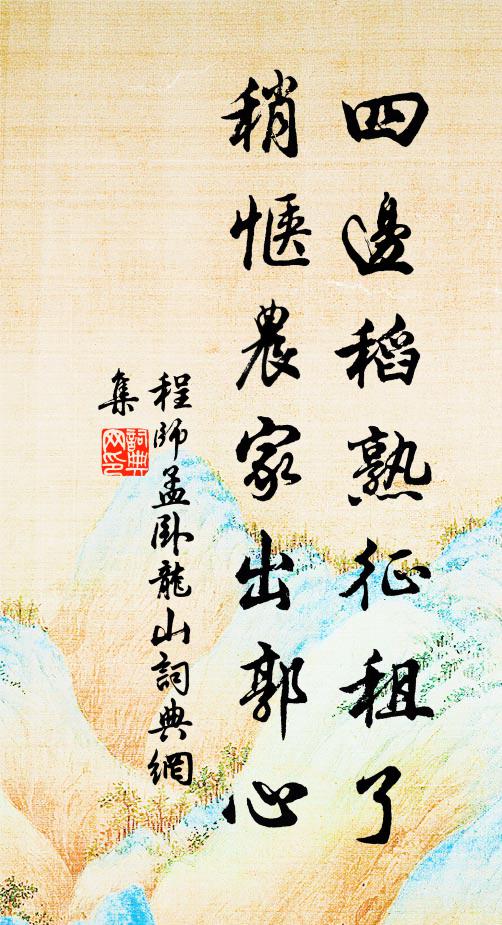 四邊稻熟征租了
稍愜農家出郭心
程師孟臥龍山詞典網
集
詞典
网印